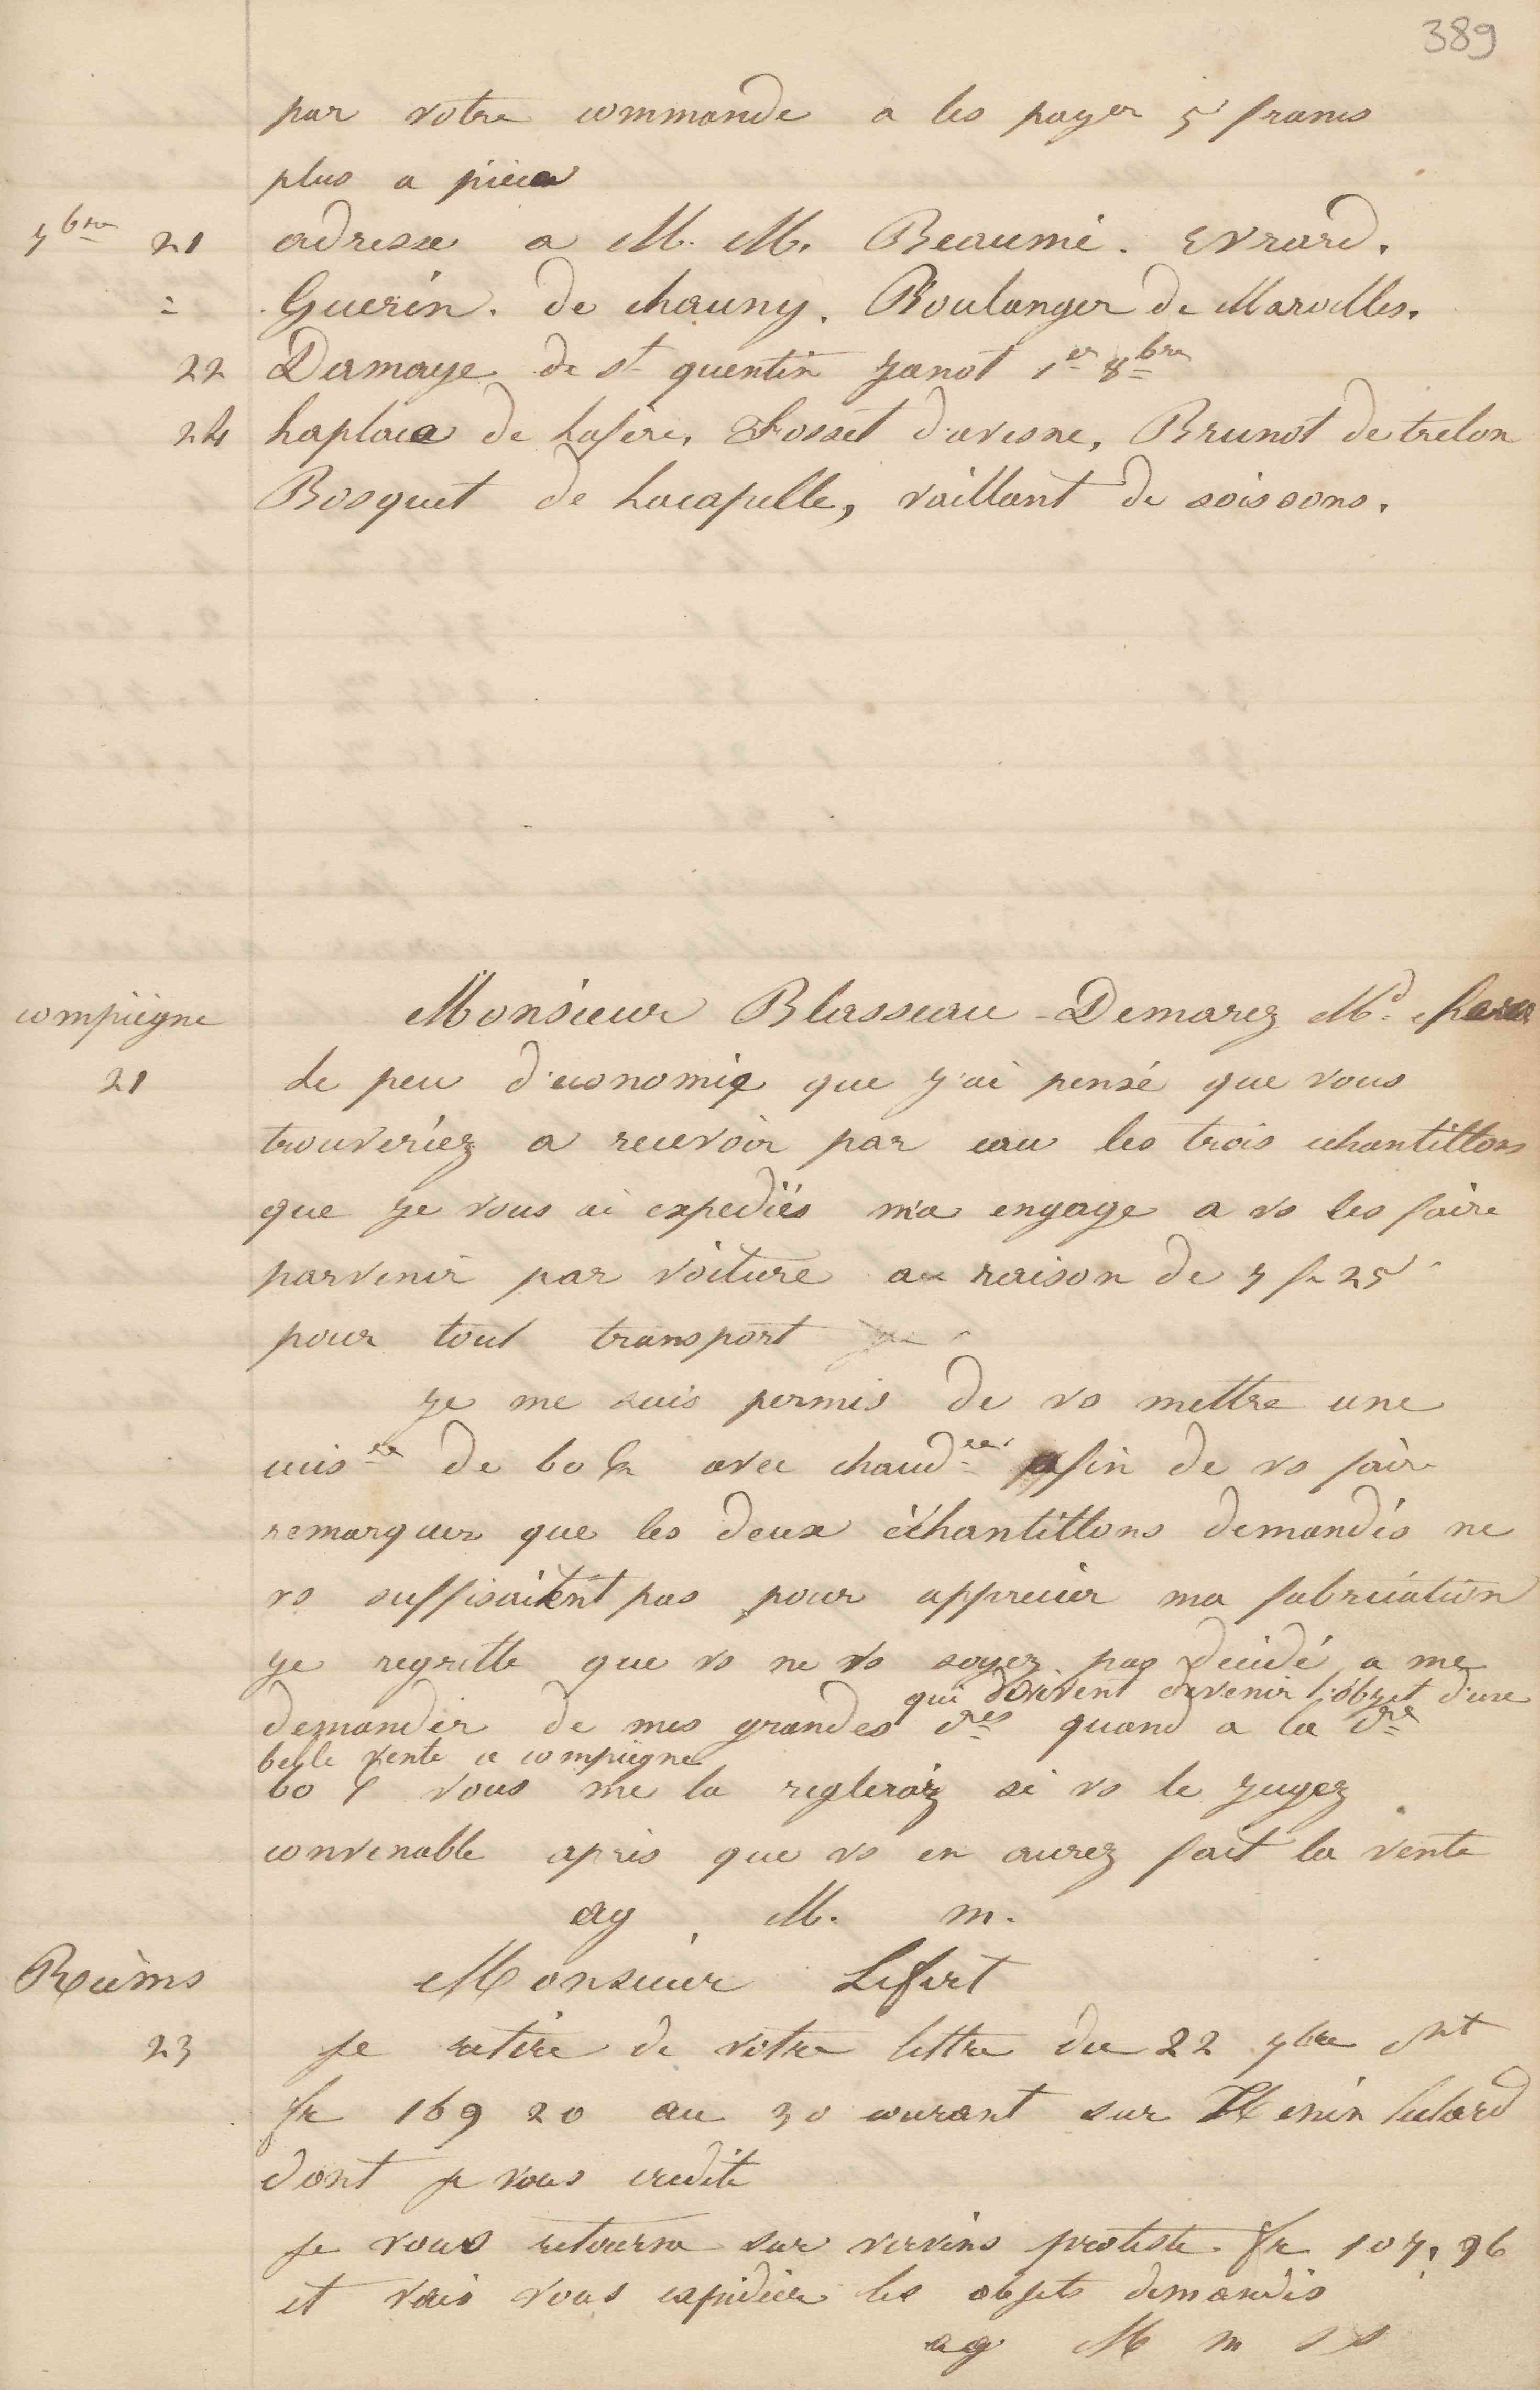 389
par votre commande a les payer 5 francs
plus a pièce
7bre 21 adresse a M. M. Beaumé. Evrard.
= Guerin. de chauny. Boulanger de Marolles.
22 Demaye de st quentin Janot 1er 8bre
24 Laplace de Lafère, Fosset d'avesne, Brunot de trelon
Bosquet de Lacapelle, vaillant de soissons.
compiègne Monsieur Blasseau-Demarez Md
21 Le peu d'économie que j'ai pensé que vous
trouveriez a recevoir par eau les trois echantillons
que je vous ai expediés m'a engage a vs les faire
parvenir par voiture a raison de 7 fr 25
pour tout transport
je me suis permis de vs mettre une
cuisre de 60 avec chaudre afin de vs faire
remarquer que les deux échantillons demandés ne
vs suffisaient pas pour apprecier ma fabrication
je regrette que vs ne vs soyez pas decidé a me
qui doivent devenir l'objet d'une
demander de mes grandes dres quand a la dre
belle vente a compiègne
60 vous me la reglerez si vs le jugez
convenable après que vs en aurez fait la vente
ag M. m.
Reims Monsieur Lefert
23 Je retire de votre lettre du 22 7bre
fr 169 20 au 30 courant sur Henin lietard
dont je vous credite
Je vous retourne sur vervins protesté fr 107,96
et vais vous expedier les objets demandés
ag M m